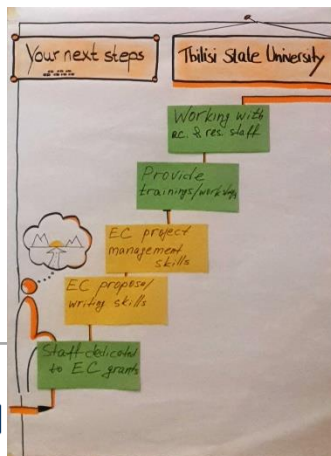 Your next steps
Tbilisi State University
Working with
ac. & res. staff
Provide
trainings/workshops
EC project
management
skills
EC proposal
writing skills
Staff dedicated
to EC grants